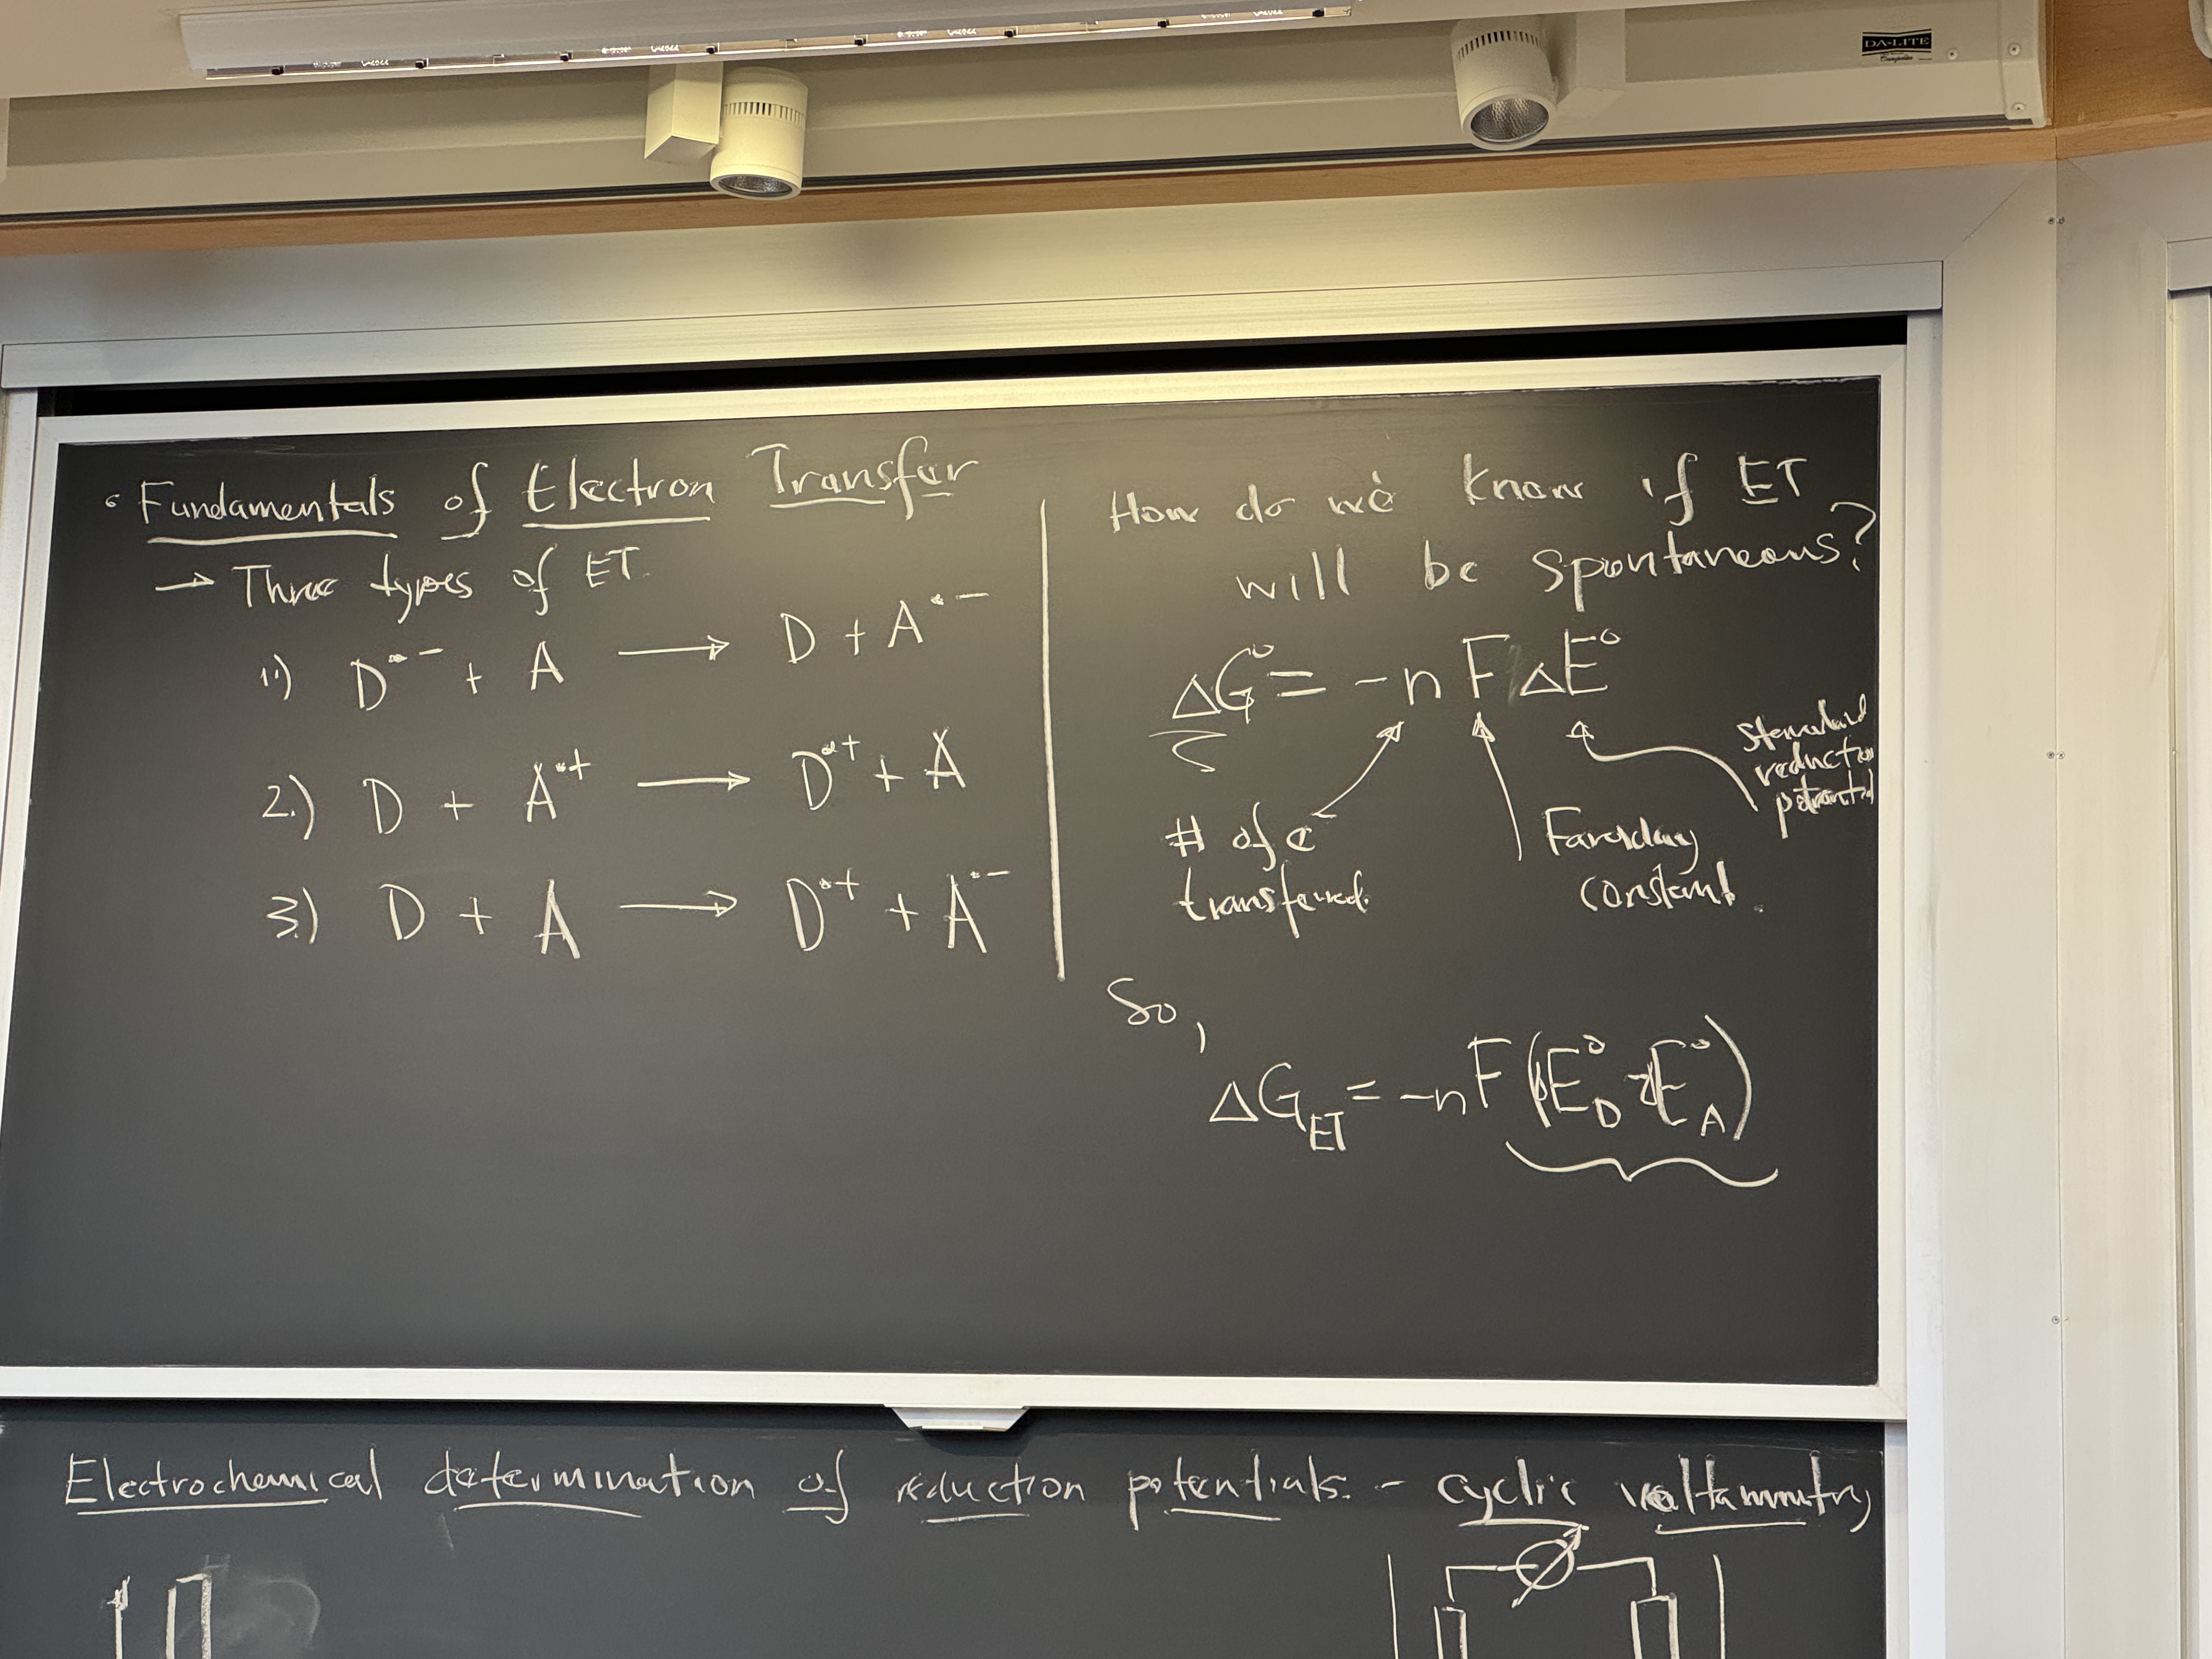 DA-LITE
• Fundamentals of Electron Transfer
→ Three types of ET.
1.) D•⁻ + A → D + A•⁻
2.) D + A•⁺ → D•⁺ + A
3.) D + A → D•⁺ + A•⁻
How do we know if ET
will be spontaneous?
ΔG° = -n F ΔE°
# of e⁻
transferred.
Faraday
constant.
standard
reduction
potential
So,
ΔG_ET = -nF(E°_D - E°_A)
Electrochemical determination of reduction potentials. - cyclic voltammetry